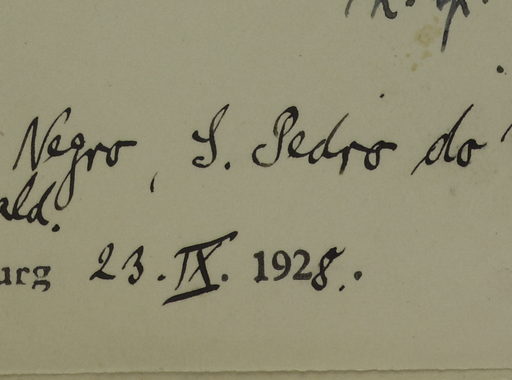 Negro, S. Pedro do
ald.
urg 23. IX. 1928.